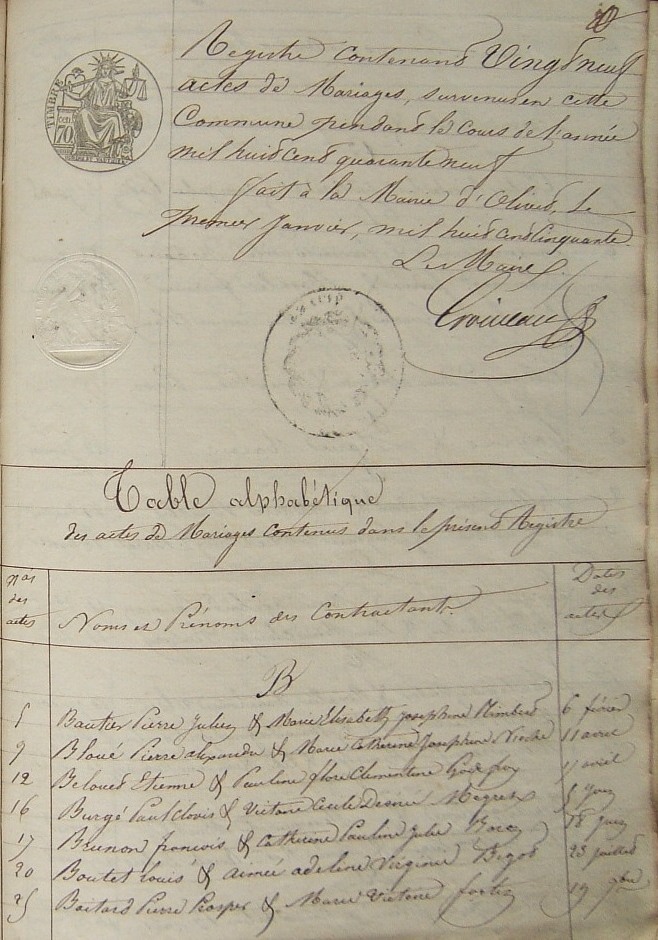 Registre contenant Vingt neuf
actes de Mariages, survenus en cette
Commune pendant le cours de l'année
mil huit cent quarante neuf
fait à la Mairie d'Olivet, le
premier Janvier, mil huit cent cinquante
Le Maire
TIMBRE
70
Table alphabétique
des actes de Mariages contenus dans le présent Registre
Nos des actes
Noms et Prénoms des Contractants.
Dates des actes
B
Pierre Julien & Marie Elisabeth Josephine 6 février
9 Bloué Pierre alexandre & Marie Catherine Josephine 11 avril
12 Etienne & Pauline flore Clementine Godefroy 11 avril
16 Burgé Paul Clovis & Victoire Cecile Desirée
17 Brunon francois & Catherine Pauline Julie 18 juin
20 Boutet Louis & Aimée adeline Virginie Bigot 23 juillet
25 Pierre Prosper & Marie Victoire 19 9bre